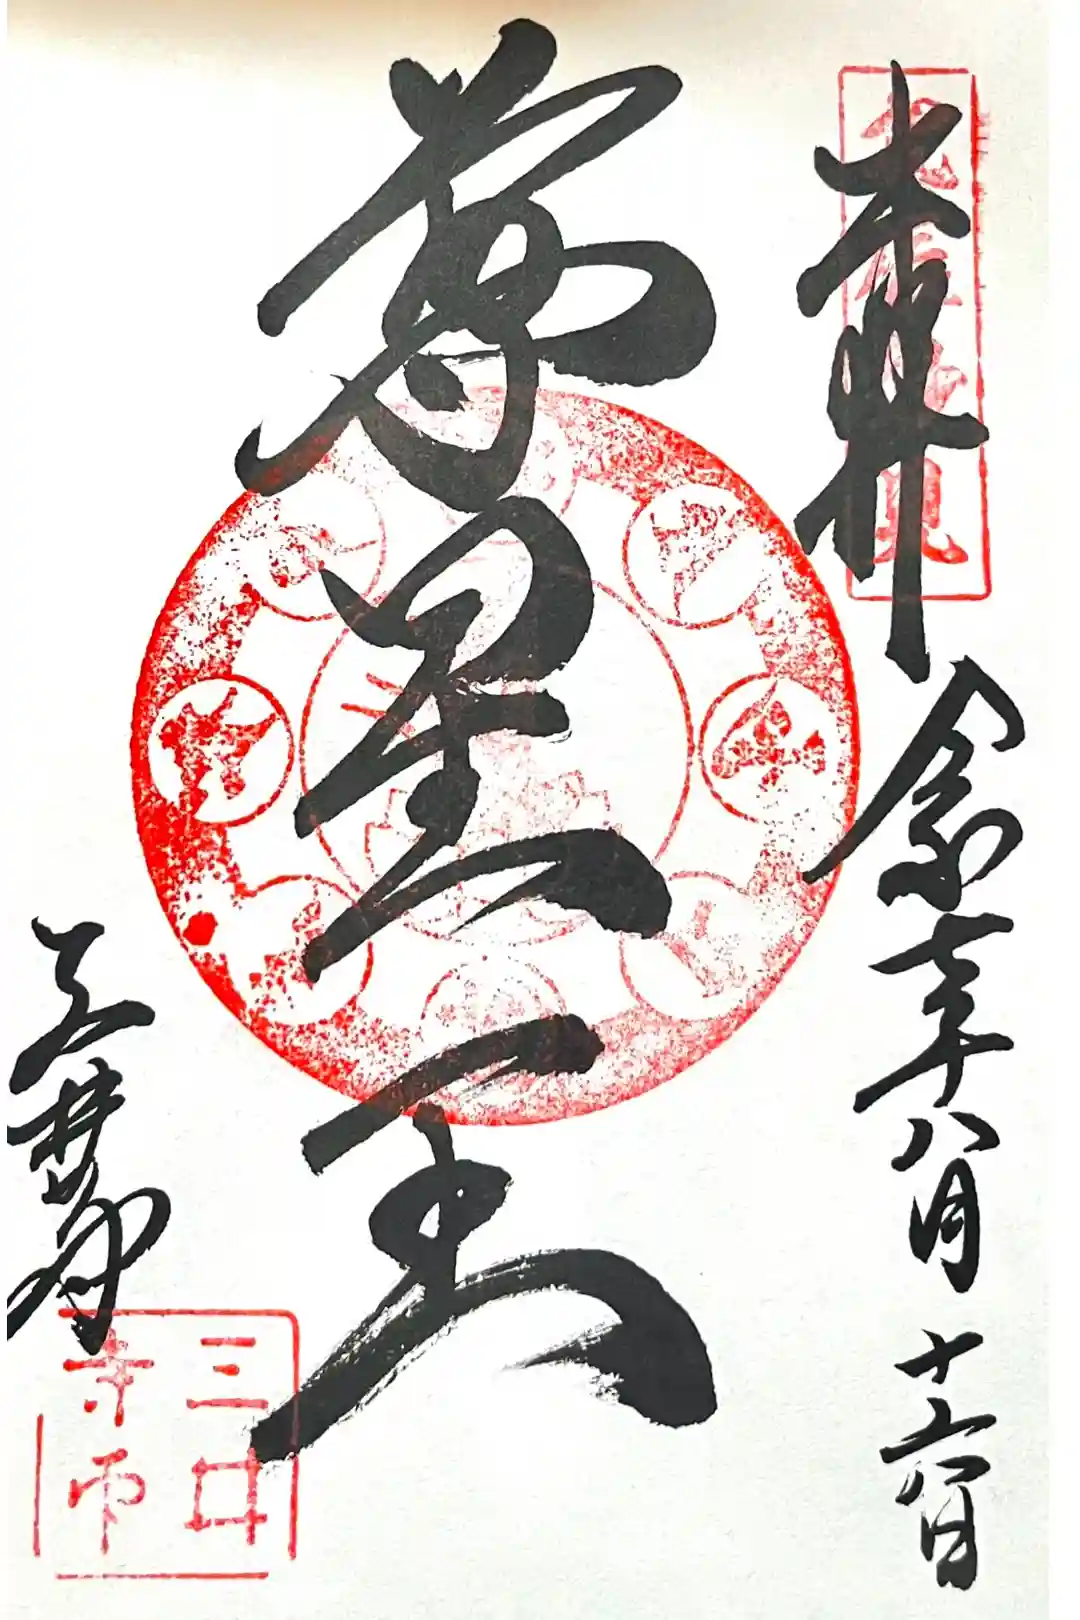 奉拝 令和七年八月十六日
尊星王
三井寺
三井
寺印